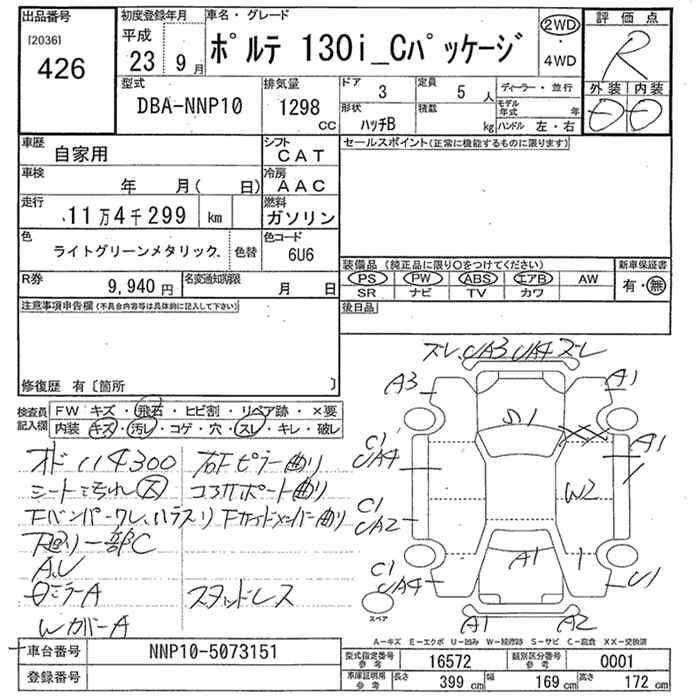 出品番号
[2036]
426
初度登録年月
平成
23年 9月
車名・グレード
ポルテ 130i_Cパッケージ
2WD
・
4WD
評価点
R
外装 内装
型式
DBA-NNP10
排気量
1298
CC
ドア
3
定員
5 人
ディーラー・並行
モデル年式 年
形状
ハッチB
積載
kg
ハンドル 左・右
車歴
自家用
シフト
CAT
セールスポイント(正常に機能するものに限ります)
車検
年 月( 日)
冷房
AAC
走行
11万4千299 km
燃料
ガソリン
色
ライトグリーンメタリック.
色替
色コード
6U6
装備品 (純正品に限り○をつけてください)
PS PW ABS エアB AW
SR ナビ TV カワ
新車保証書
有・無
R券
9,940円
名変通知期限
月 日
後日品
注意事項申告欄(不具合内容等は具体的に記入して下さい)
修復歴 有〔箇所 〕
検査員記入欄
FW キズ・飛石・ヒビ割・リペア跡・×要
内装 キズ・汚レ・コゲ・穴・スレ・キレ・破レ
オド 114300 右Fピラー曲り
シート汚れ大 コアサポート曲り
Fバンパーワレ、ハズスリ Fサイドメンバー曲り
下廻り一部C
A,U
ミラーA スタッドレス
WカバーA
ズレ UA3 UA4 ズレ
A3
A1
S1
C1
UA4
A1
W2
C1
UA2
A1
C1
UA4
U1
A1
A2
スペア
A-キズ E-エクボ U-凹み W-補修跡 S-サビ C-腐食 XX-交換済
車台番号
NNP10-5073151
登録番号
型式指定番号
参考
16572
類別区分番号
参考
0001
車庫証明用
参考
長さ 399 cm 幅 169 cm 高さ 172 cm